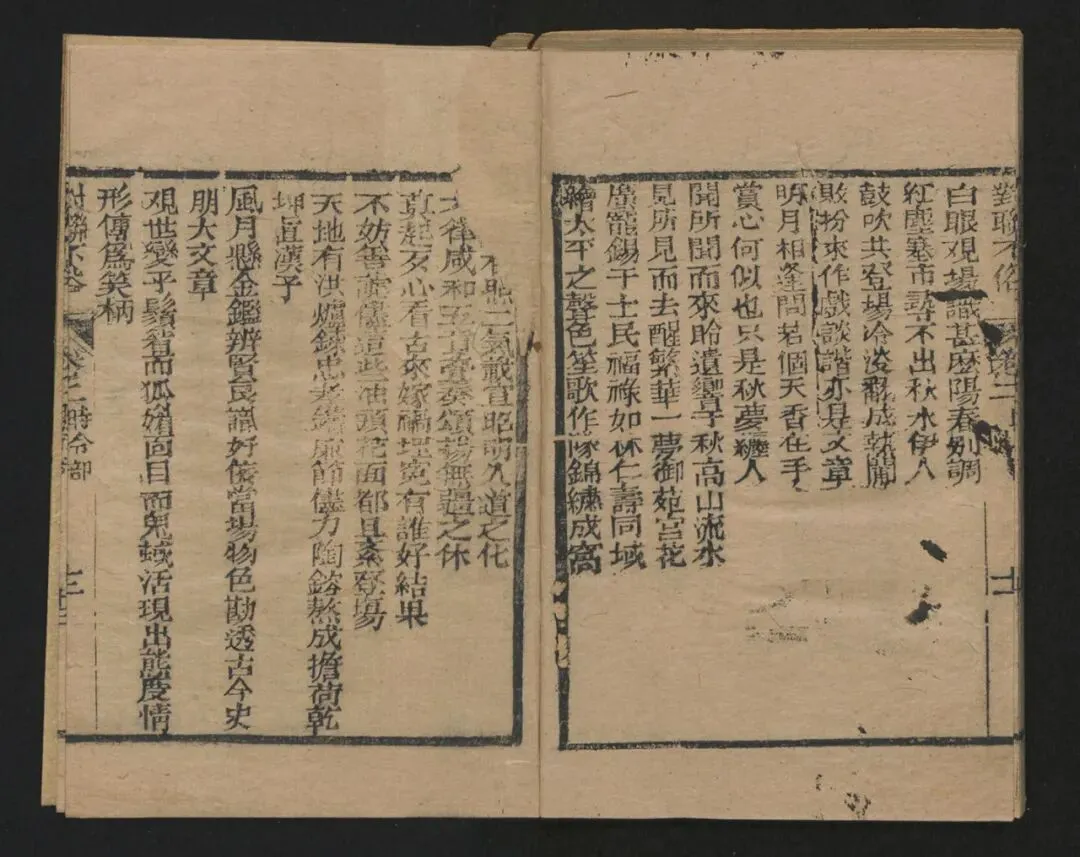 對聯不俗 卷二
十二
白眼觀場識甚麽陽春别調
紅塵塞市尋不出秋水伊人
鼓吹共登場冷淡翻成熱鬧
敗粉來作戲談諧亦是文章
明月相逢問若個天香在手
賞心何似也只是秋夢纏人
聞所聞而來聆遺響于秋高山流水
見所見而去醒繁華一夢御苑宮花
廣寵錫于士民福祿如林仁壽同域
繪太平之聲色笙歌作隊錦繡成窩
二氣 宣昭明人道之化
律咸和 頌揚無疆之休
死心看古來嫁禍埋寃有誰好結果
不妨善 儘這些油頭花面都且紊登塲
天地有洪爐錬忠孝鑄廉節儘力陶鎔熬成擔荷乾
坤直漢子
風月懸金鑑辨賢良識奸佞當場物色勘透古今史
册大文章
觀世變乎鬚眉而狐媚面目而鬼蜮活現出態度情
形傳爲笑柄
對聯不俗 卷之二時令部
十三